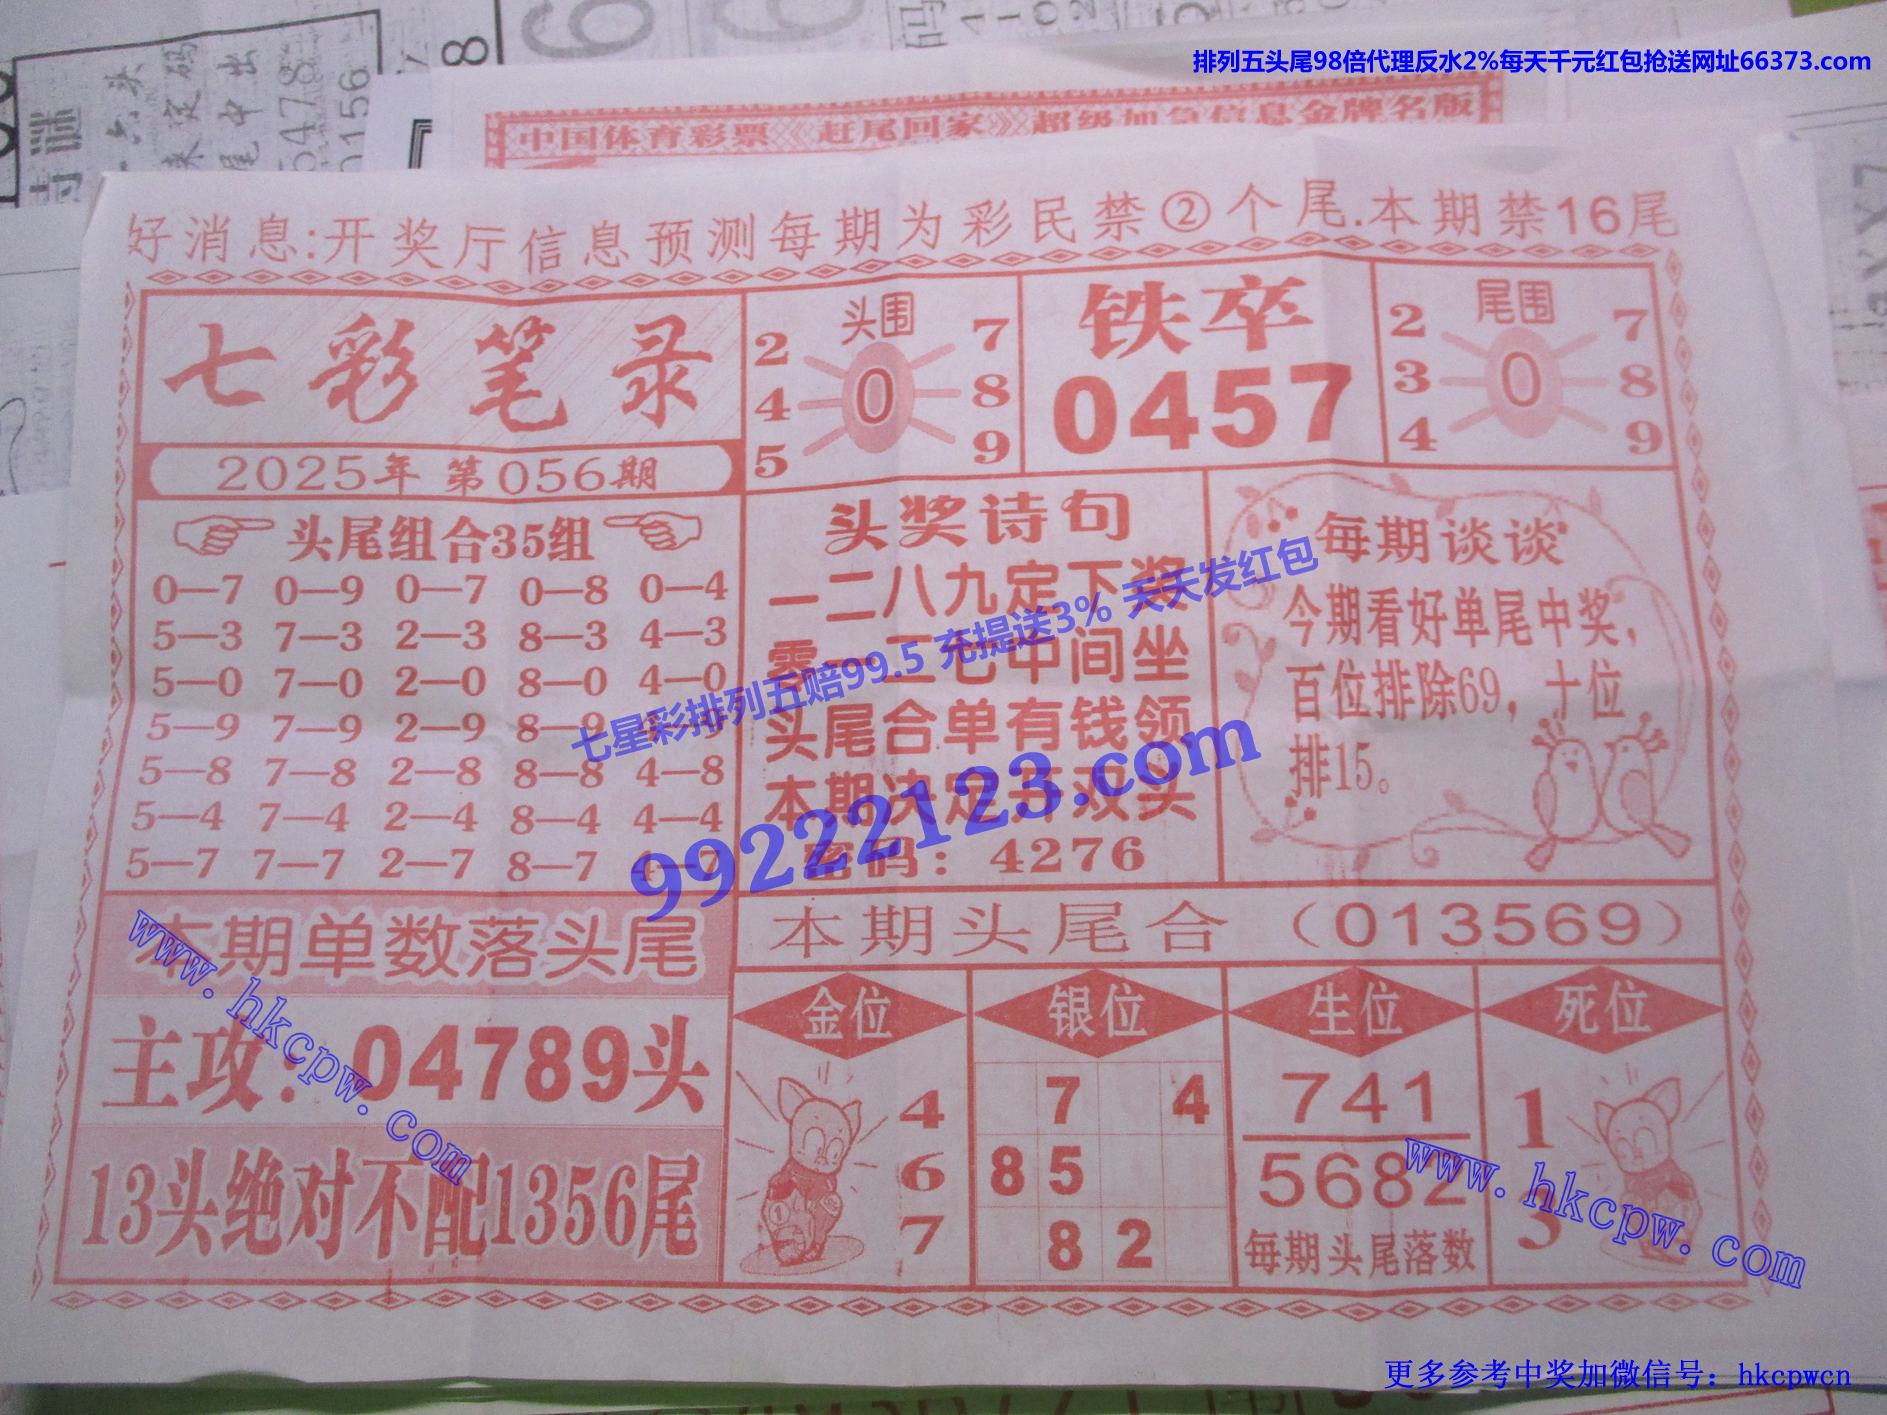 排列五头尾98倍代理反水2%每天千元红包抢送网址66373.com
中国体育彩票《赶尾回家》超级加急信息金牌名版
好消息:开奖厅信息预测每期为彩民禁②个尾.本期禁16尾
七彩笔录
2025年 第056期
头围
2 7
4 0 8
5 9
铁卒
0457
尾围
2 7
3 0 8
4 9
头尾组合35组
0—7 0—9 0—7 0—8 0—4
5—3 7—3 2—3 8—3 4—3
5—0 7—0 2—0 8—0 4—0
5—9 7—9 2—9 8—9 4—9
5—8 7—8 2—8 8—8 4—8
5—4 7—4 2—4 8—4 4—4
5—7 7—7 2—7 8—7 4—7
头奖诗句
一二八九定下奖
零一二七中间坐
头尾合单有钱领
本期决定开双头
密码：4276
每期谈谈
今期看好单尾中奖，
百位排除69，十位
排15。
七星彩排列五赔99.5 充提送3% 天天发红包
99222123.com
本期单数落头尾
主攻：04789头
13头绝对不配1356尾
本期头尾合（013569）
金位
4
6
7
银位
7 4
8 5
8 2
生位
741
5682
每期头尾落数
死位
1
3
www.hkcpw.com
www.hkcpw.com
更多参考中奖加微信号：hkcpwcn